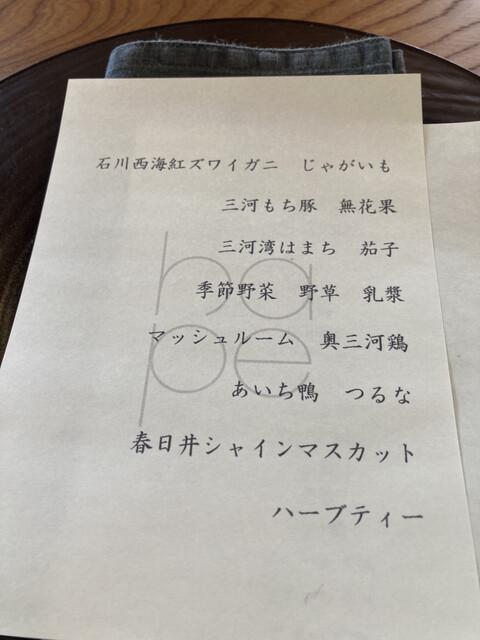 石川西海紅ズワイガニ　じゃがいも
三河もち豚　無花果
三河湾はまち　茄子
季節野菜　野草　乳漿
マッシュルーム　奥三河鶏
あいち鴨　つるな
春日井シャインマスカット
ハーブティー
ha
pe